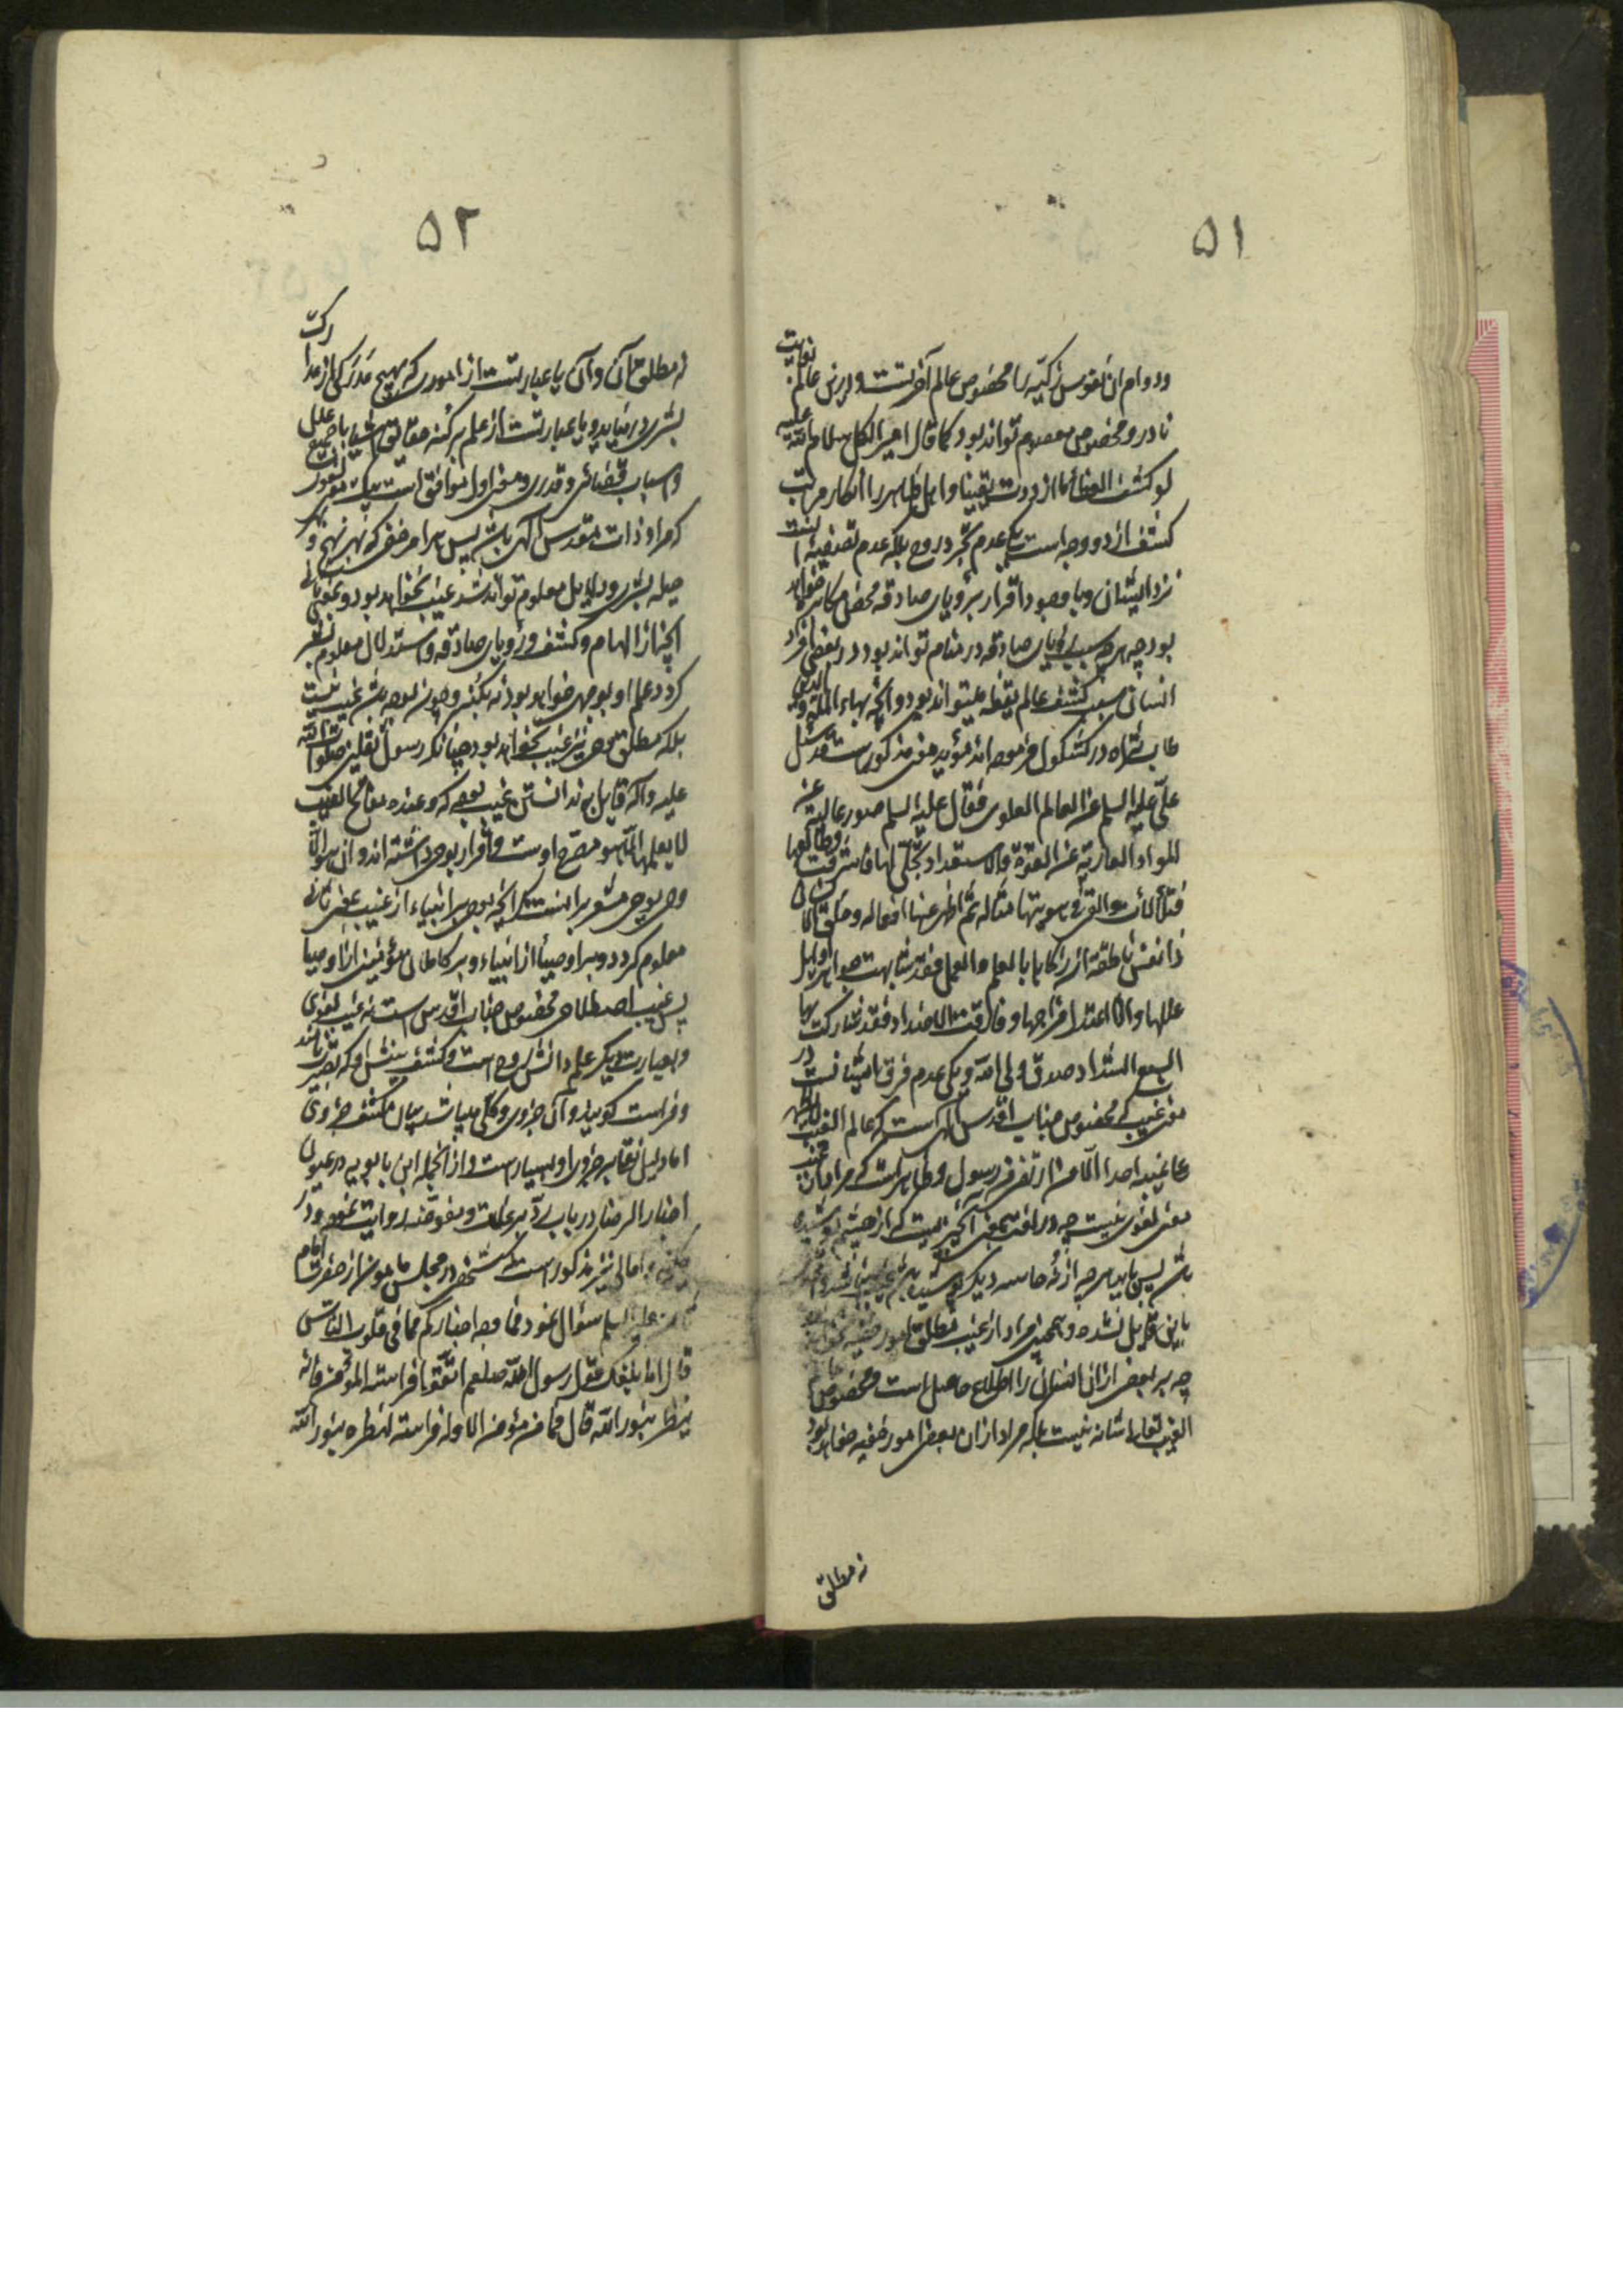 ۵۱
ودوام ان نفوس زکیّه را مخصوص عالم آخرتست ودرین عالم بغایت
نادر ومخصوص معصوم تواند بود کما قال امیر الکل سلام الله علیه
لو کشف الغطأ ما ازددت یقینا واهل ظاهر را انکار مراتب
کشف از دو وجه است یکی عدم تجرّد روح بلکه عدم تصفیهٔ آنست
نزد ایشان وبا وجود اقرار برؤیای صادقه محض مکابره خواهد
بود چه هرچه سبب رؤیای صادقه در منام تواند بود در بعضی افراد
انسانی سبب کشف عالم یقظه میتواند بود وآنچه بهاء الملّة والدین
طاب ثراه در کشکول فرموده اند مؤید معنی مذکور است قد سئل
علیّ علیه السلم عن العالم العلوی فقال علیه السلم صور عالیة عن
للمواد العاریة عن القوّة والاستعداد تجلّی لها فاشرقت وطالعها
فتلألأت والقی فی هویتها مثاله ثم اظهر عنها افعاله وخلق الانسان
ذا نفس ناطقة ان زکاها بالعلم والعمل فقد شابهت جواهر اوایل
عللها واذا اعتدل مزاجها وفارقت الاضداد فقد شارکت بها
السبع الشداد صدق ولی الله ویکی عدم فرق ایشانست در
معنی غیب که مخصوص جناب اقدس الهی است که عالم الغیب فلا یظهر
علی غیبه احدا الّا من ارتضی من رسول وظاهر است که مراد از غیب
معنی لغوی نیست چه در لغت بمعنی آنچیزیست که از چشم پوشیده
باشد پس باید هرچه از حاسه دیگر پوشیده باشد غیب نباشد و
باین قایل نشده وهمچنین مراد از غیب مطلق امور خفیه
چه بر بعض از ان انسان را اطلاع حاصل است ومخصوص
الغیب تعالی شانه نیست بلکه مراد از ان بعض امور خفیه خواهد بود
نه مطلق
۵۲
نه مطلق آن وآن یا عبارتست از اموری که بهیچ مدرکی از مدارک
بشری در نیاید ویا عبارتست از علم بر کنه حقایق اشیا با جمیع علل
واسباب قضائی وقدری ومعنی اول موافق است
که مراد ذات مقدس الهی باشد پس هر امر خفی که بهر نهج و
حیله بشری ودلایل معلوم تواند شد غیب نخواهد بود وبمعنی ثانی
آنچه از الهام وکشف ورؤیای صادقه واستدلال معلوم بشر
کردد علم او بوجهی خواهد بود نه بکنه وچون بوجه باشد غیب نیست
بلکه مطلق وحی نیز غیب نخواهد بود چنانکه رسول ثقلین صلوات الله
علیه وآله قایل بر ندانستن غیب بوده که وعنده مفاتح الغیب
لا یعلمها الّا هو مصرّح اوست واقرار بوحی داشته اند وان هو الّا
وحی یوحی مشعر بر اینست که آنچه بوحی بر انبیاء از غیب بمعنی ثانی
معلوم کردد وبر اوصیا از انبیاء وبر کاملان مؤمنین از اوصیا
پس غیب اصطلاحی مخصوص جناب اقدس است نه غیب لغوی
وبعبارت دیکر علم دانش روح است وکشف بینش او که بصیرت نامند
وفراست کویند وآن جزوی وکلی میباشد بیان کشف جزوی
اما دلیل نقلی بر جزوی او بسیار است واز آنجمله ابن بابویه در عیون
اخبار الرضا در باب ردّ بر غلات ومفوّضه روایت نموده ودر
وامالی نیز مذکور است که شخصی در مجلس مامون از حضرت امام
علیه السلم سؤال نمود فما وجه اخبارکم بما فی قلوب النّاس
قال اما بلغک قول رسول الله صلعم اتّقوا فراسة المؤمن فانّه
ینظر بنور الله قال فما من مؤمن الا وله فراسة لنظره بنور الله